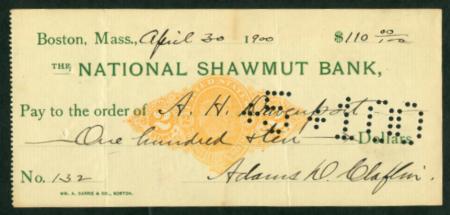 Boston, Mass., April 30 1900 $110 00/100
THE NATIONAL SHAWMUT BANK,
Pay to the order of A. H. Davenport
One hundred & ten Dollars
No. 132 Adams D. Claflin.
WM. A. DAVIS & CO., BOSTON.